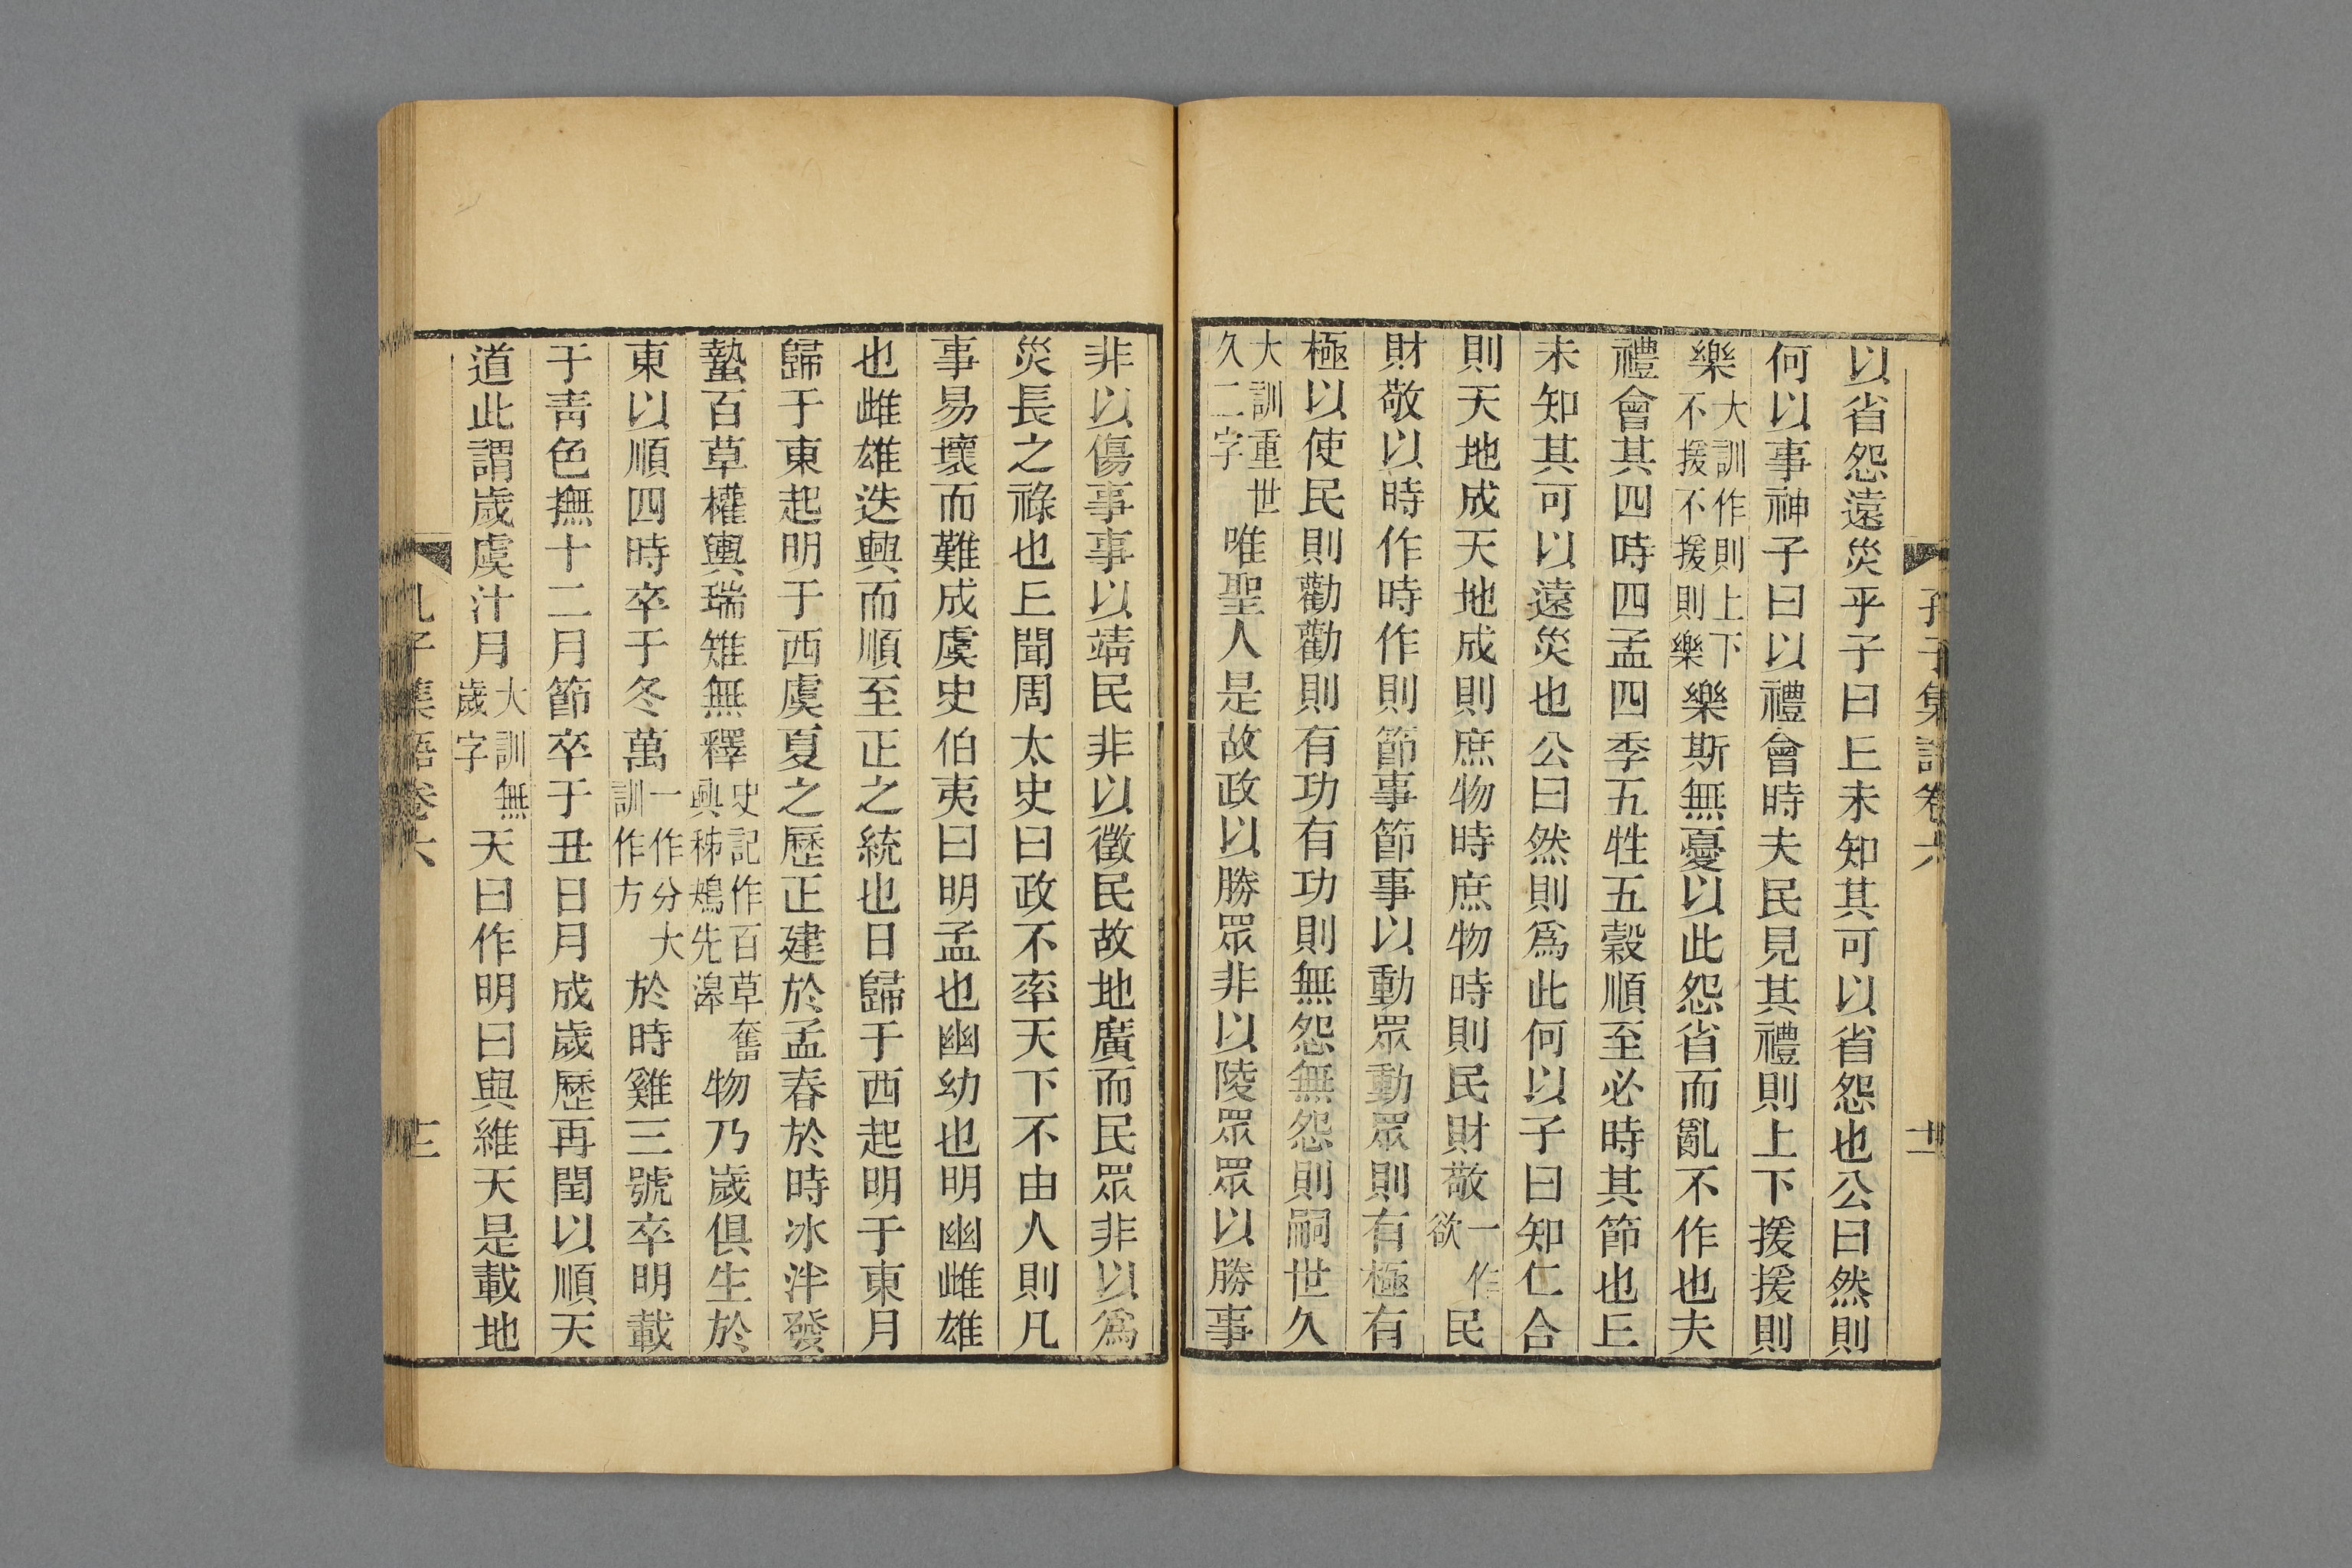 孔子集語卷六 十二
以省怨遠災乎子曰丘未知其可以省怨也公曰然則
何以事神子曰以禮會時夫民見其禮則上下援援則
樂大訓作則上下不援不援則樂樂斯無憂以此怨省而亂不作也夫
禮會其四時四孟四季五牲五穀順至必時其節也丘
未知其可以遠災也公曰然則爲此何以子曰知仁合
則天地成天地成則庶物時庶物時則民財敬一作欲民
財敬以時作時作則節事節事以動眾動眾則有極有
極以使民則勸勸則有功有功則無怨無怨則嗣世久
大訓重世久二字唯聖人是故政以勝眾非以陵眾眾以勝事
非以傷事事以靖民非以徵民故地廣而民眾非以爲
災長之祿也丘聞周太史曰政不率天下不由人則凡
事易壞而難成虞史伯夷曰明孟也幽幼也明幽雌雄
也雌雄迭興而順至正之統也日歸于西起明于東月
歸于東起明于西虞夏之歷正建於孟春於時冰泮發
蟄百草權輿瑞雉無釋史記作百草奮興秭鳺先滜物乃歲俱生於
東以順四時卒于冬萬一作分大訓作方於時雞三號卒明載
于靑色撫十二月節卒于丑日月成歲歷再閏以順天
道此謂歲虞汁月大訓無歲字天曰作明曰與維天是載地
孔子集語卷六 三